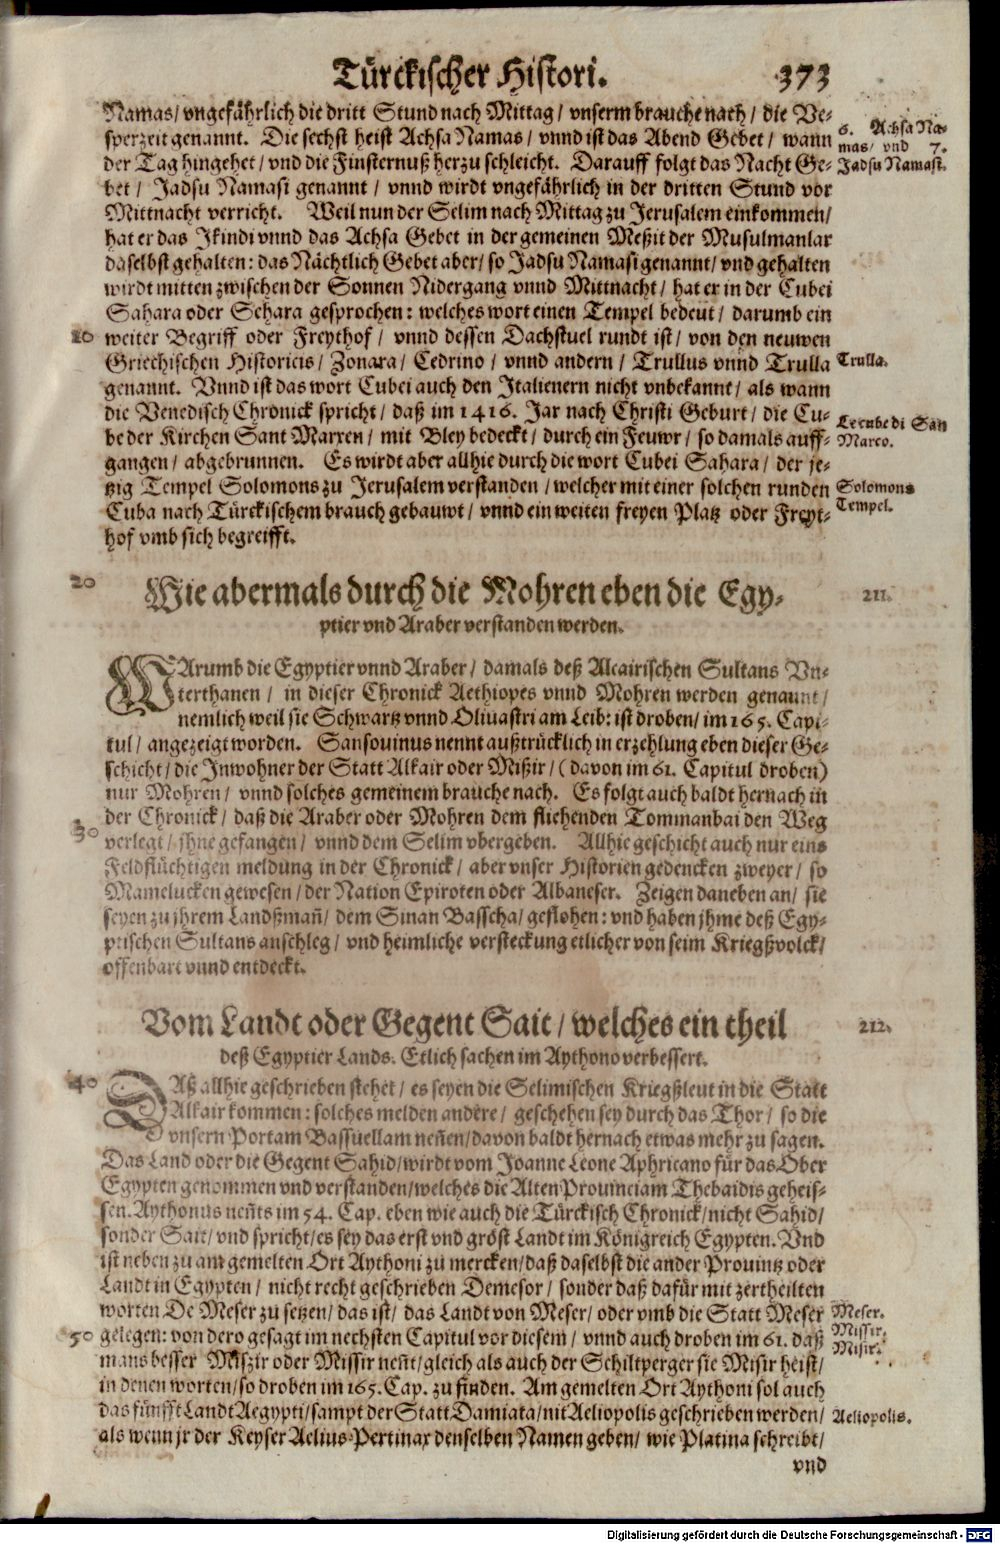 Türckischer Histori. 373
Namas/ vngefährlich die dritt Stund nach Mittag/ vnserm brauche nach/ die Ve-
sperzeit genannt. Die sechst heist Achsa Namas/ vnnd ist das Abend Gebet/ wann
6. Achsa Na-
mas/ vnd 7.
der Tag hingehet/ vnd die Finsternuß herzu schleicht. Darauff folgt das Nacht Ge-
Jadsu Namasi.
bet/ Jadsu Namasi genannt/ vnnd wirdt vngefährlich in der dritten Stund vor
Mittnacht verricht. Weil nun der Selim nach Mittag zu Jerusalem einkommen/
hat er das Jkindi vnnd das Achsa Gebet in der gemeinen Meßit der Musulmanlar
daselbst gehalten: das Nächtlich Gebet aber/ so Jadsu Namasi genannt/ vnd gehalten
wirdt mitten zwischen der Sonnen Nidergang vnnd Mittnacht/ hat er in der Cubei
Sahara oder Sehara gesprochen: welches wort einen Tempel bedeut/ darumb ein
10 weiter Begriff oder Freythof/ vnnd dessen Dachstuel rundt ist/ von den neuwen
Griechischen Historicis/ Zonara/ Cedrino/ vnnd andern/ Trullus vnnd Trulla
Trulla.
genannt. Vnnd ist das wort Cubei auch den Italienern nicht vnbekannt/ als wann
die Venedisch Chronick spricht/ daß im 1416. Jar nach Christi Geburt/ die Cu-
Le cube di San
be der Kirchen Sant Marxen/ mit Bley bedeckt/ durch ein Feuwr/ so damals auff-
Marco.
gangen/ abgebrunnen. Es wirdt aber allhie durch die wort Cubei Sahara/ der je-
tzig Tempel Solomons zu Jerusalem verstanden/ welcher mit einer solchen runden
Solomons
Cuba nach Türckischem brauch gebauwt/ vnnd ein weiten freyen Platz oder Freyt-
Tempel.
hof vmb sich begreifft.
20
Wie abermals durch die Mohren eben die Egy-
211.
ptier vnd Araber verstanden werden.
WArumb die Egyptier vnnd Araber/ damals deß Alcairischen Sultans Vn-
terthanen/ in dieser Chronick Aethiopes vnnd Mohren werden genannt/
nemlich weil sie Schwartz vnnd Oliuastri am Leib: ist droben/ im 165. Capi-
tul/ angezeigt worden. Sansouinus nennt außtrücklich in erzehlung eben dieser Ge-
schicht/ die Inwohner der Statt Alkair oder Mißir/ (davon im 61. Capitul droben)
nur Mohren/ vnnd solches gemeinem brauche nach. Es folgt auch baldt hernach in
der Chronick/ daß die Araber oder Mohren dem fliehenden Tommanbai den Weg
30 verlegt/ jhne gefangen/ vnnd dem Selim vbergeben. Allhie geschicht auch nur eins
Feldflüchtigen meldung in der Chronick/ aber vnser Historien gedencken zweyer/ so
Mamelucken gewesen/ der Nation Epiroten oder Albaneser. Zeigen daneben an/ sie
seyen zu jhrem Landßmañ/ dem Sinan Basscha/ geflohen: vnd haben jhme deß Egy-
ptischen Sultans anschleg/ vnd heimliche versteckung etlicher von seim Kriegßvolck/
offenbart vnnd entdeckt.
Vom Landt oder Gegent Sait/ welches ein theil
212.
deß Egyptier Lands. Etlich sachen im Aythono verbessert.
40 DAß allhie geschrieben stehet/ es seyen die Selimischen Kriegßleut in die Statt
Alkair kommen: solches melden andere/ geschehen sey durch das Thor/ so die
vnsern Portam Bassuellam neñen/ davon baldt hernach etwas mehr zu sagen.
Das Land oder die Gegent Sahid/ wirdt vom Joanne Leone Aphricano für das Ober
Egypten genommen vnd verstanden/ welches die Alten Prouinciam Thebaidis geheis-
sen. Aythonus neñts im 54. Cap. eben wie auch die Türckisch Chronick/ nicht Sahid/
sonder Sait/ vnd spricht/ es sey das erst vnd gröst Landt im Königreich Egypten. Vnd
ist neben zu am gemelten Ort Aythoni zu mercken/ daß daselbst die ander Prouintz oder
Landt in Egypten/ nicht recht geschrieben Demesor/ sonder daß dafür mit zertheilten
worten De Meser zu setzen/ das ist/ das Landt von Meser/ oder vmb die Statt Meser
Meser.
50 gelegen: von dero gesagt im nechsten Capitul vor diesem/ vnnd auch droben im 61. daß
Missir.
mans besser Miszir oder Missir neñt/ gleich als auch der Schiltperger sie Misir heist/
Misir.
in denen worten/ so droben im 165. Cap. zu finden. Am gemelten Ort Aythoni sol auch
das fünfft Landt Aegypti/ sampt der Statt Damiata/ nit Aeliopolis geschrieben werden/
Aeliopolis.
als wenn jr der Keyser Aelius Pertinax denselben Namen geben/ wie Platina schreibt/
vnd
Digitalisierung gefördert durch die Deutsche Forschungsgemeinschaft - DFG